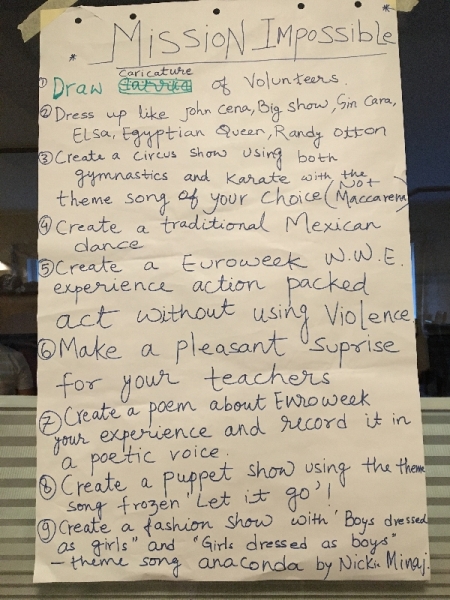 MISSION IMPOSSIBLE
caricature
① Draw of Volunteers.
② Dress up like John Cena, Big show, Sin Cara,
Elsa, Egyptian Queen, Randy Otton
③ Create a circus show using both
gymnastics and Karate with the
theme song of your choice (Not
Maccarena)
④ Create a traditional Mexican
dance
⑤ Create a Euroweek W.W.E.
experience action packed
act without using Violence
⑥ Make a pleasant suprise
for your teachers
⑦ Create a poem about Euroweek
your experience and record it in
a poetic voice.
⑧ Create a puppet show using the theme
song frozen 'Let it go'!
⑨ Create a fashion show with "Boys dressed
as girls" and "Girls dressed as boys"
- theme song anaconda by Nicki Minaj.